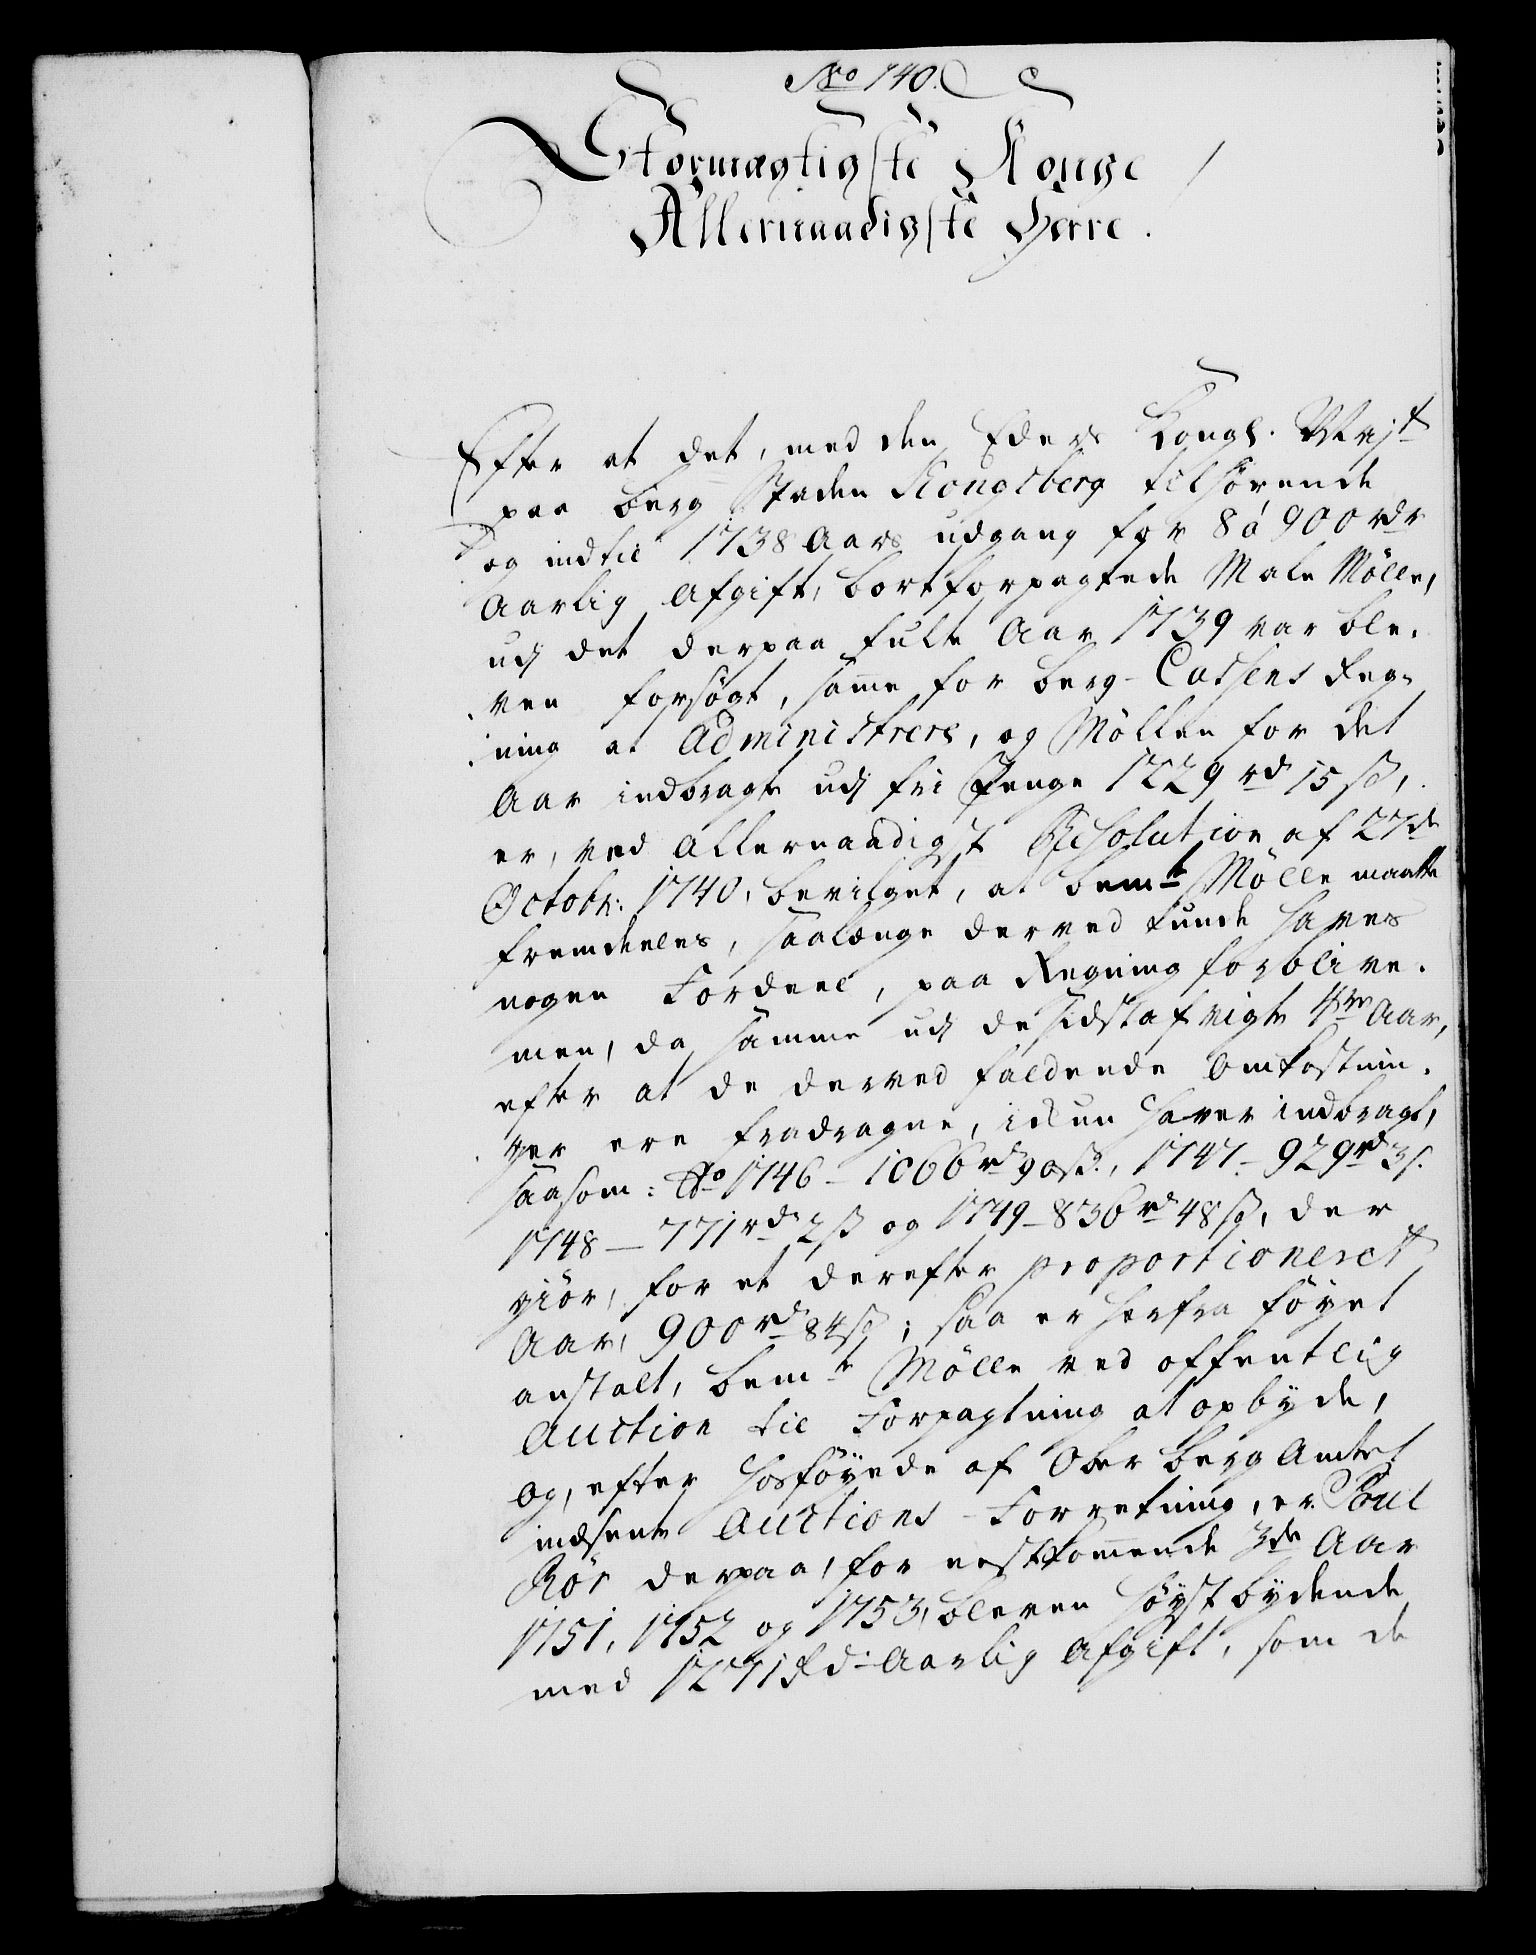 No 140.
Stormægtigste Konge
Allernaadigste Herre.
Efter at det, med den Eders Kongl. Majt
paa berg Staden Kongsberg tilhørende
og indtil 1738 Aars udgang for 8 á 900 rdr
Aarlig Afgift, bortforpagtede Male Mølle,
udj det derpaa fulte Aar 1739 var ble,
ven forsøgt, samme for berg-Cassens Reg,
ning at Administrere, og Møllen for det
Aar indbragte udj frj Penge 1229 rd 15 ß,
er, ved Allernaadigst Resolution af 27de
Octobr: 1740, bevilget, at bemte Mølle maatte
fremdeeles, saalænge derved kunde haves
nogen Fordeel, paa Regning forblive.
men, da samme udj de sidst afvigte 4re Aar,
efter at de derved faldende Omkostnin,
ger ere fradragne, ickun haver indbragt,
saasom: Ao 1746 - 1066 rd 90 ß., 1747 - 929 rd 3 ß.
1748 - 771 rd 2 ß og 1749 - 836 rd 48 ß, der
giør, for et derefter proportioneret
Aar, 900 rd 84 ß; saa er herfra føyet
anstalt, bemte Mølle ved offentlig
Auction til Forpagtning at opbyde,
og, efter hosføyede af Ober berg Amtet
indsente Auctions-Forretning, er Poul
Rør derpaa, for nestkommende 3de Aar
1751, 1752 og 1753, bleven høystbydende
med 1271 Rd: Aarlig Afgift, som de